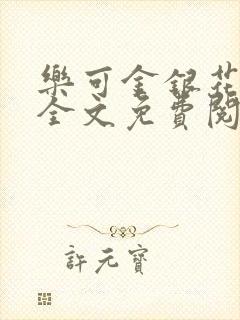 樂可金銀花
全文免費閱
許元寶